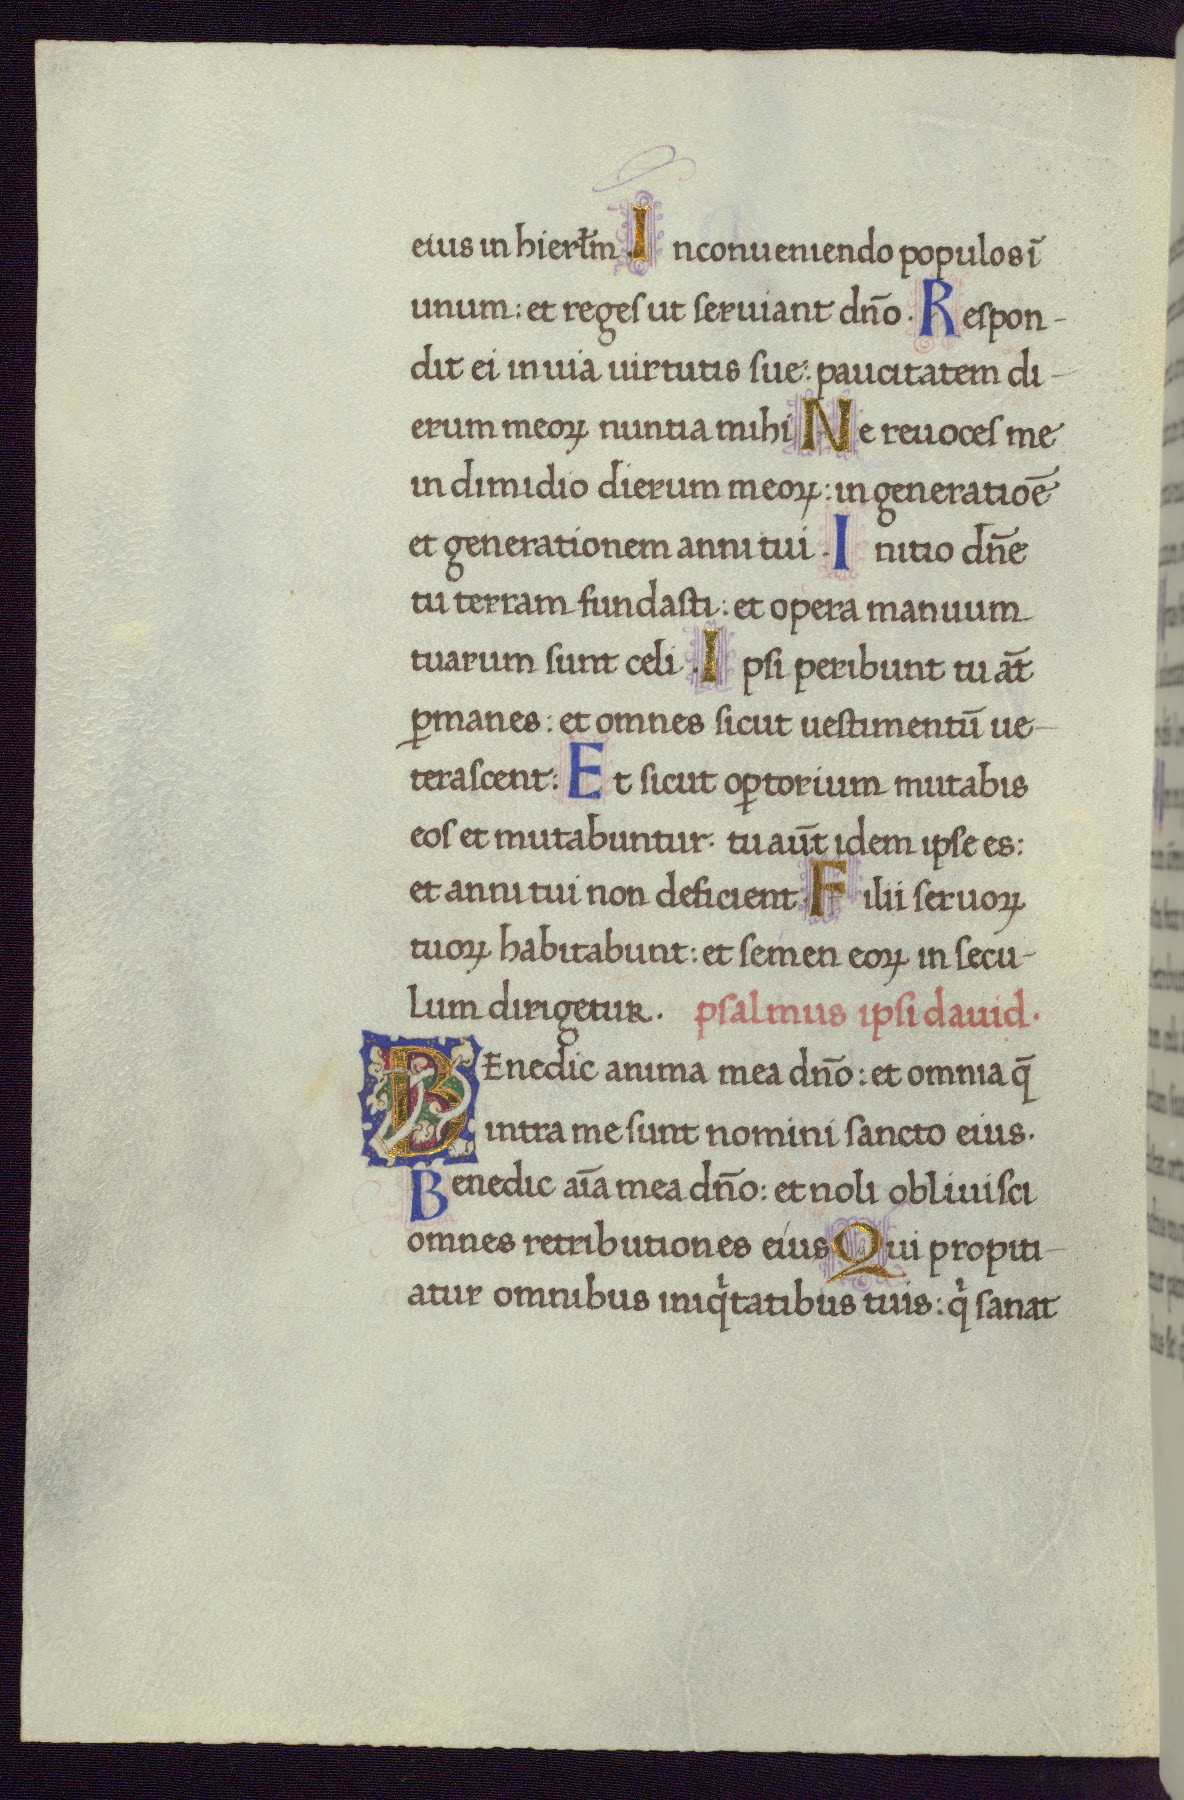 eius in hierłm. In conueniendo populos ī
unum: et reges ut seruiant dño. Respon-
dit ei in uia uirtutis sue: paucitatem di-
erum meoꝝ nuntia mihi Ne reuoces me
in dimidio dierum meoꝝ: in generatioē
et generationem anni tui. Initio dñe
tu terram fundasti: et opera manuum
tuarum sunt celi. Ipsi peribunt tu aūt
ꝑmanes: et omnes sicut uestimentū ue-
terascent: Et sicut oꝑtorium mutabis
eos et mutabuntur. tu aūt idem ipse es:
et anni tui non deficient. Filii seruoꝝ
tuoꝝ habitabunt: et semen eoꝝ in secu-
lum dirigetur. psalmus ipsi dauid.
BEnedic anima mea dño: et omnia q̄
intra me sunt nomini sancto eius.
Benedic aīa mea dño: et noli obliuisci
omnes retributiones eius Qui propiti-
atur omnibus iniqͥtatibus tuis: qͥ sanat